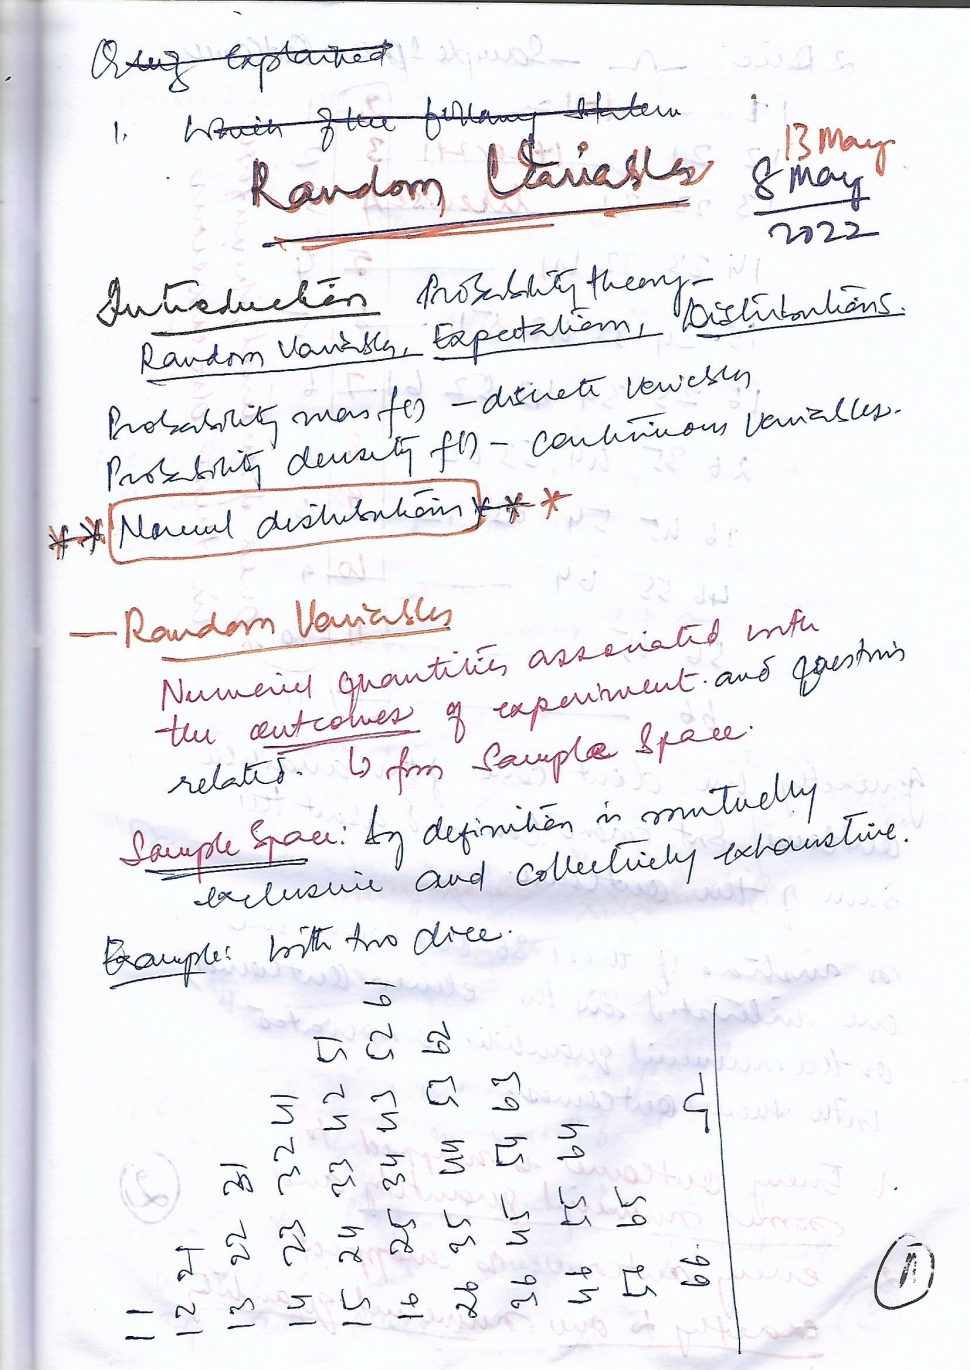 Quiz explained
1. Which of the following statem
Random Variables
13 May
8 May
2022
Introduction Probability theory -
Random Variables, Expectations, Distributions.
Probability mass f() - discrete variables
Probability density f() - continuous variables.
** Normal distributions ***
- Random Variables
Numerical quantities associated with
the outcomes of experiment. and questions
related. ↳ from Sample Space.
Sample Space: by definition is mutually
exclusive and collectively exhaustive.
Example: With two dice.
11
12 21
13 22 31
14 23 32 41
15 24 33 42 51
16 25 34 43 52 61
26 35 44 53 62
36 45 54 63
46 55 64
56 65
66.